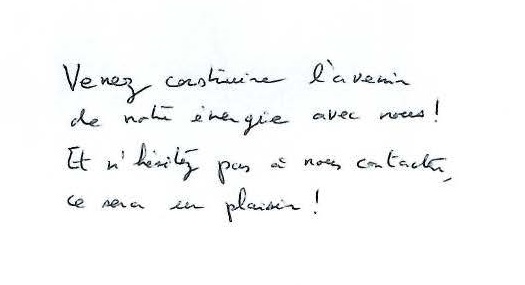 Venez construire l'avenir
de notre énergie avec nous !
Et n'hésitez pas à nous contacter,
ce sera un plaisir !